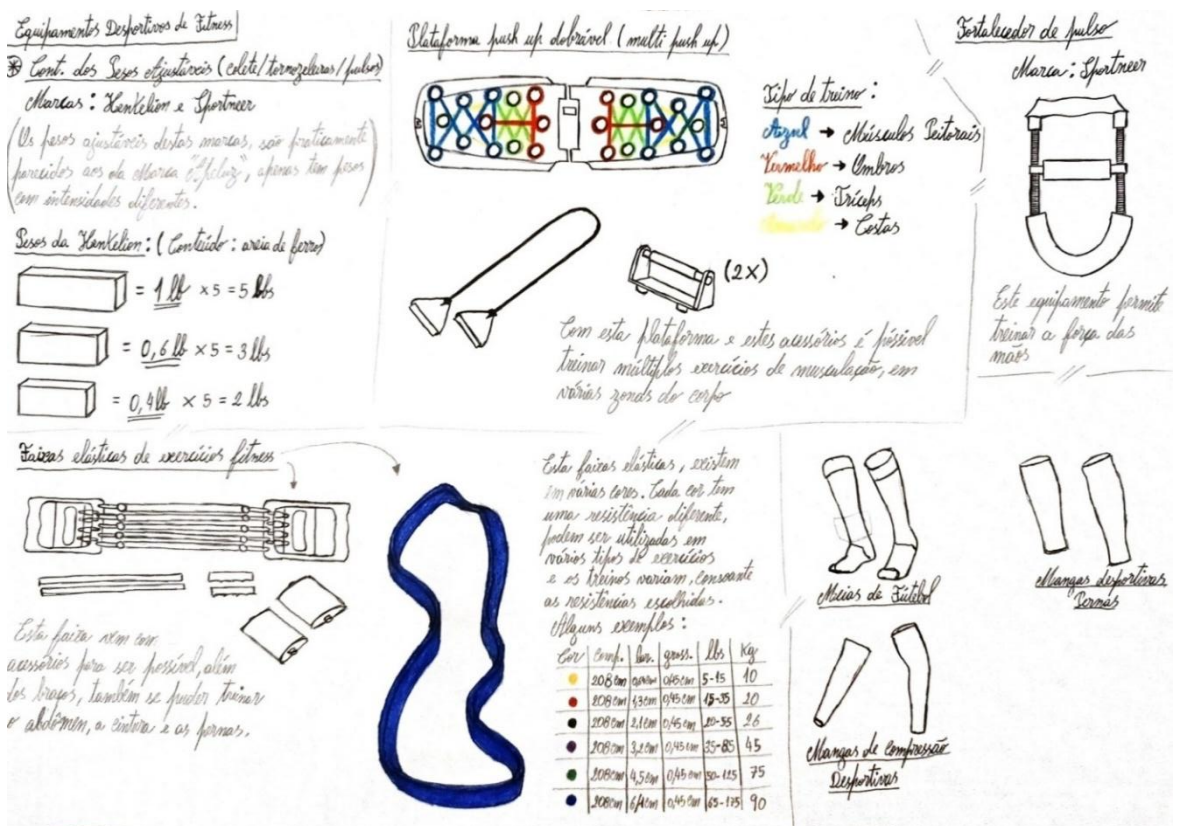 Equipamentos Desportivos de Fitness
Cont. dos Pesos Ajustáveis (colete/tornozeleiras/pulsos)
Marcas: Henkelion e Sportneer
(Os pesos ajustáveis destas marcas, são praticamente
parecidos aos da Marca apenas tem pesos
com intensidades diferentes.)
Pesos da Henkelion: (Conteúdo: areia de ferro)
= 1 lb × 5 = 5 lbs
= 0,6 lb × 5 = 3 lbs
= 0,4 lb × 5 = 2 lbs
Plataforma push up dobrável (multi push up)
Tipo de treino:
Azul → Músculos Peitorais
Vermelho → Ombros
Verde → Tríceps
Amarelo → Costas
(2x)
Com esta plataforma e estes acessórios é póssivel
treinar múltiplos exercícios de musculação, em
várias zonas do corpo
Fortalecedor de pulso
Marca: Sportneer
Este equipamento permite
treinar a força das
mãos
Faixas elásticas de exercícios fitness
Esta faixa vem com
acessórios para ser possível, além
dos braços, também se puder treinar
o abdômen, a cintura e as pernas.
Esta faixas elásticas, existem
em várias cores. Cada cor tem
uma resistência diferente,
podem ser utilizadas em
vários tipos de exercícios
e os treinos variam, consoante
as resistências escolhidas.
Alguns exemplos:
Cor comp. lar. gross. lbs Kg
208cm 0,45cm 5-15 10
208cm 1,3cm 0,45cm 15-35 20
208cm 2,1cm 0,45cm 20-55 26
208cm 3,2cm 0,45cm 35-85 45
208cm 4,5cm 0,45cm 50-125 75
208cm 6,4cm 0,45cm 65-175 90
Meias de Fútebol
Mangas desportivas
Pernas
Mangas de Compressão
Desportivas